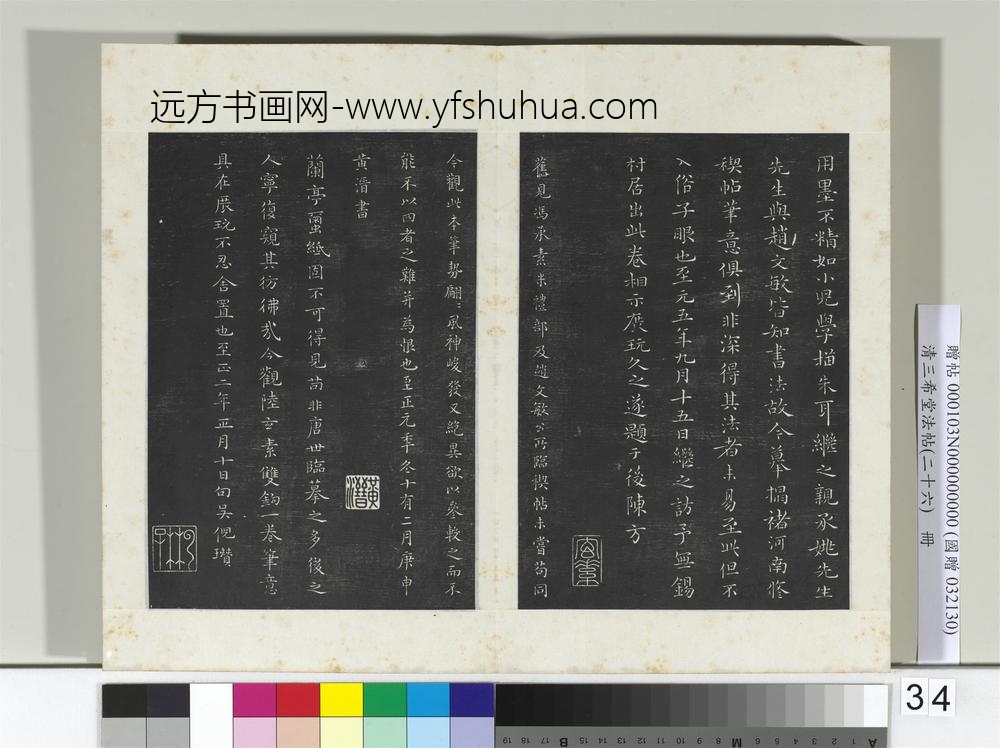 远方书画网-www.yfshuhua.com
用墨不精如小児學描朱耳繼之親承姚先生
先生與趙文敏皆知書法故今摹搨褚河南修
禊帖筆意俱到非深得其法者未易至此但不
入俗子眼也至元五年九月十五日繼之訪予無錫
村居出此卷相示展玩久之遂題于後陳方
舊見馮承素米禮部及趙文敏公所臨禊帖未嘗苟同
今觀此本筆勢翩〻風神峻發又絶異欲以參較之而不
能不以四者之難并為恨也至正元年冬十有二月庚申
黄溍書
黃溍
蘭亭蠒紙固不可得見苟非唐世臨摹之多後之
人寧復窺其彷彿哉今觀陸玄素雙鉤一卷筆意
具在展玩不忍舍置也至正二年正月十日句吳倪瓚
贈帖 000103N000000000 (國贈 032130)
清三希堂法帖(二十六) 冊
34